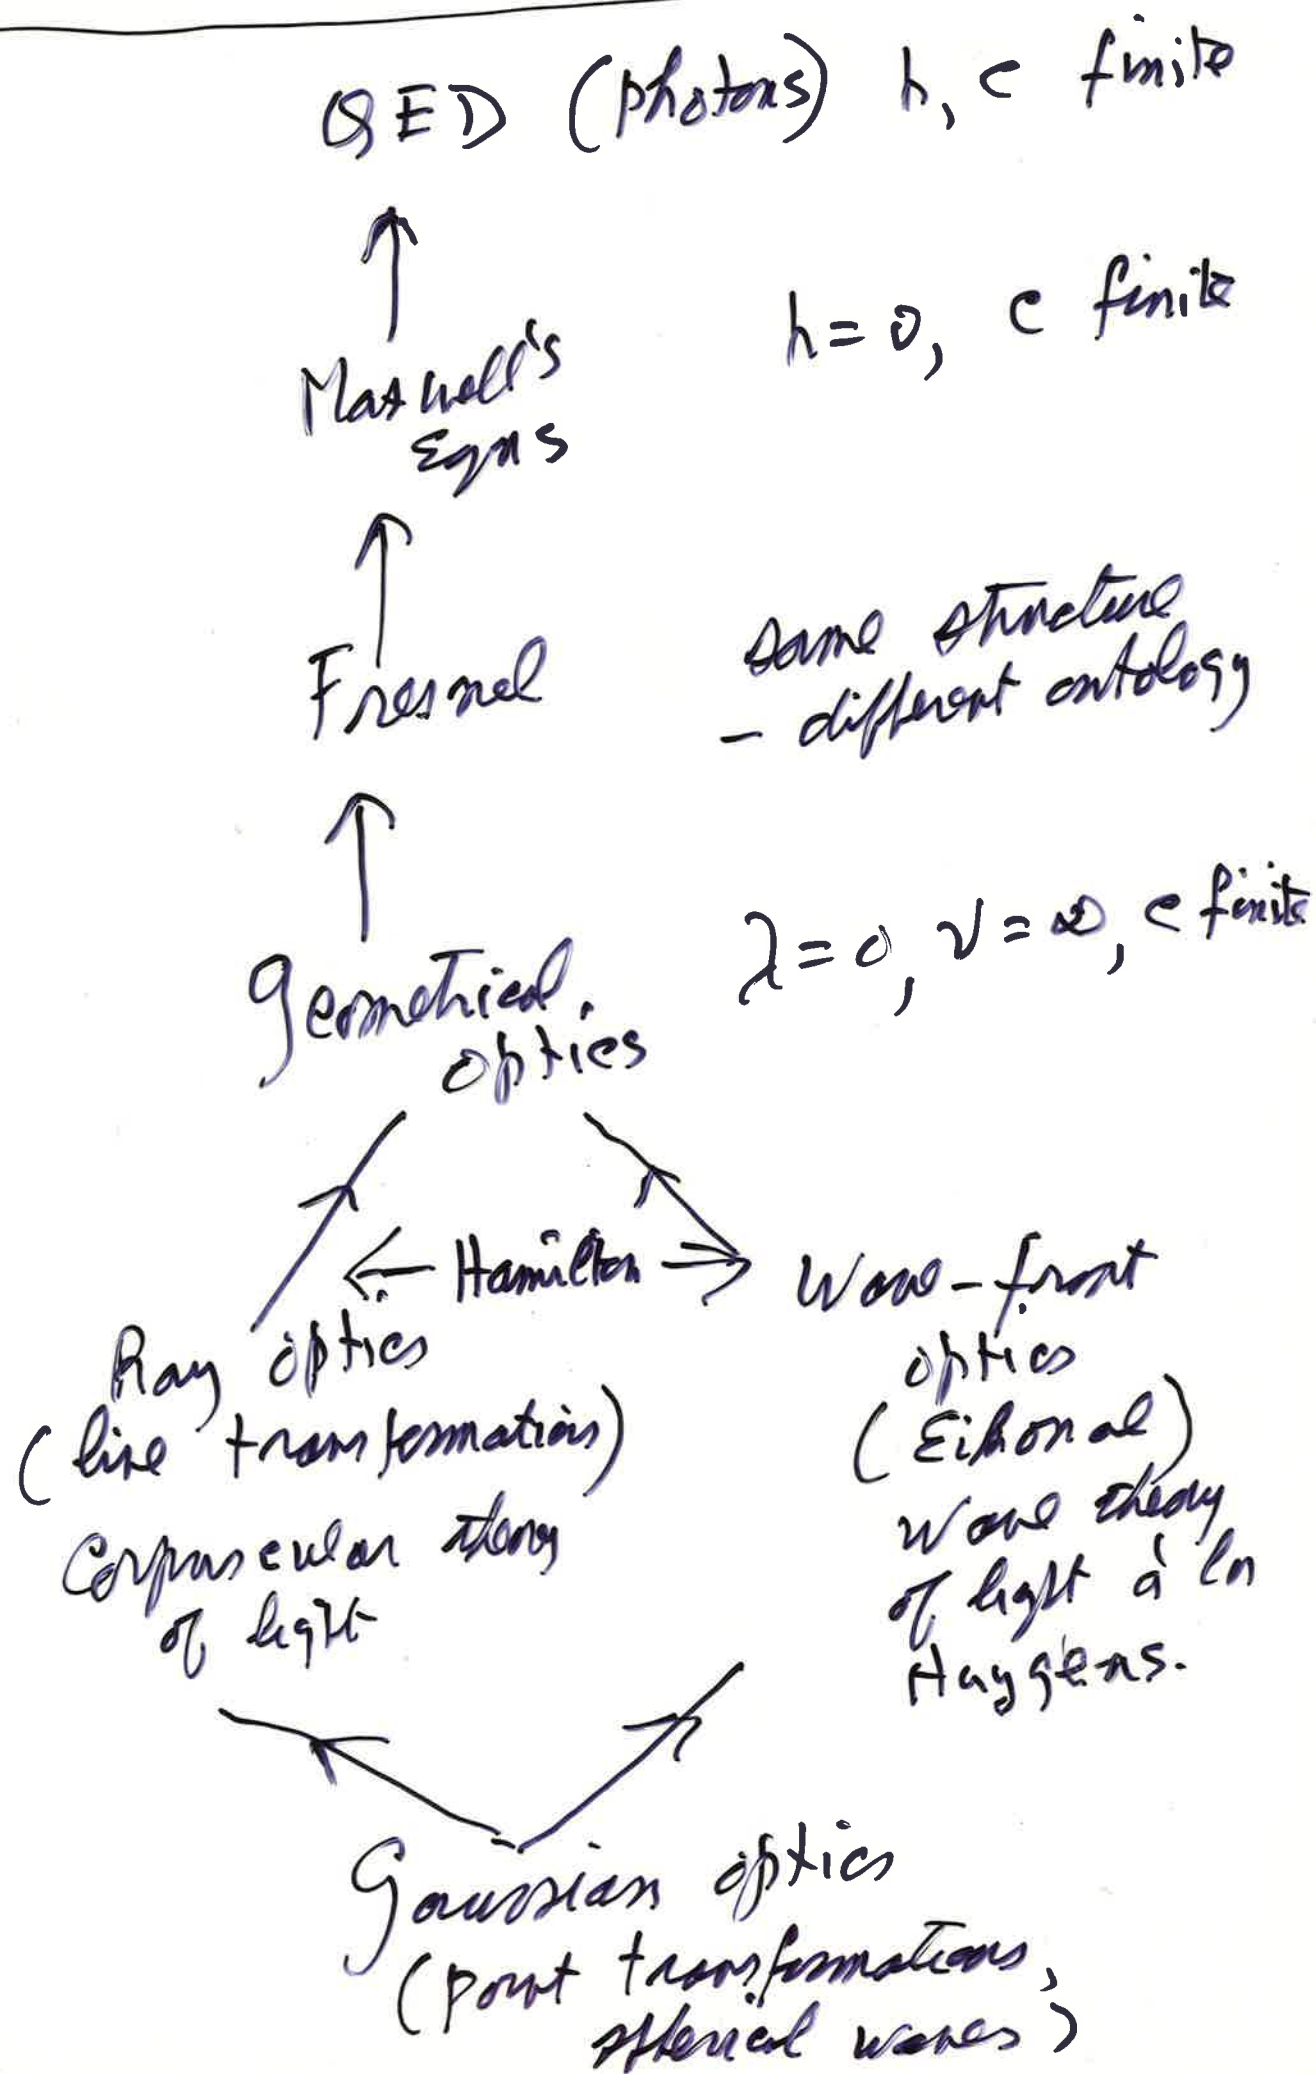 QED (photons) h, c finite
h = 0, c finite
Maxwell's
Eqns
Fresnel
same structure
- different ontology
Geometrical
optics
λ = 0, ν = ∞, c finite
← Hamilton →
Ray optics
(line transformations)
Corpuscular theory
of light
Wave-front
optics
(Eikonal)
Wave theory
of light à la
Huygens.
Gaussian optics
(point transformations,
spherical waves)